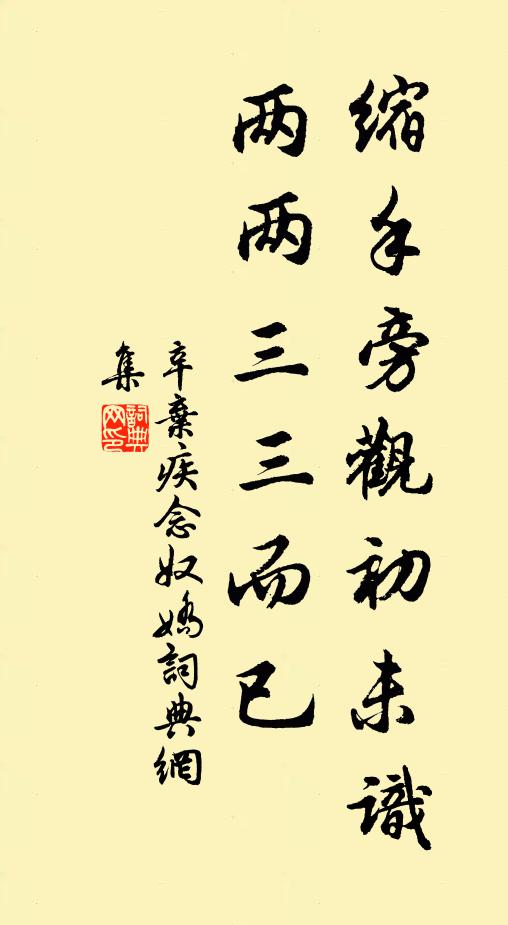 縮手旁觀初未識
两两三三而已
辛棄疾念奴嬌詞典網
集
詞典网印